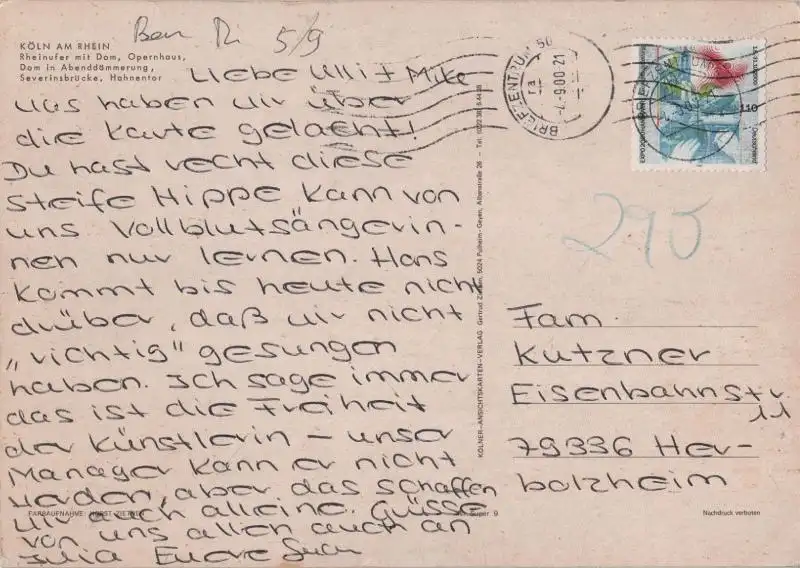 Ben Di 5/9
KÖLN AM RHEIN
Rheinufer mit Dom, Opernhaus,
Dom in Abenddämmerung,
Severinsbrücke, Hahnentor
Liebe Ulli + Mike
was haben wir über
die Karte gelacht!
Du hast recht diese
steife Hippe kann von
uns Vollblutsängerin-
nen nur lernen. Hans
kommt bis heute nicht
drüber, daß wir nicht
„richtig" gesungen
haben. Ich sage immer
das ist die Freiheit
der Künstlerin – unser
Manager kann er nicht
werden, aber das schaffen
wir auch alleine. Grüsse
von uns allen auch an
Julia Euere
FARBAUFNAHME: HORST ZIETHEN
Super 9
KÖLNER-ANSICHTSKARTEN-VERLAG Gertrud Ziethen, 5024 Pulheim-Geyen, Altenstraße 26 - Tel.
BRIEFZENTRUM 50
-4.-9.00-21
110
Deutschland
290
Fam.
Kutzner
Eisenbahnstr.
11
79336 Her-
bolzheim
Nachdruck verboten